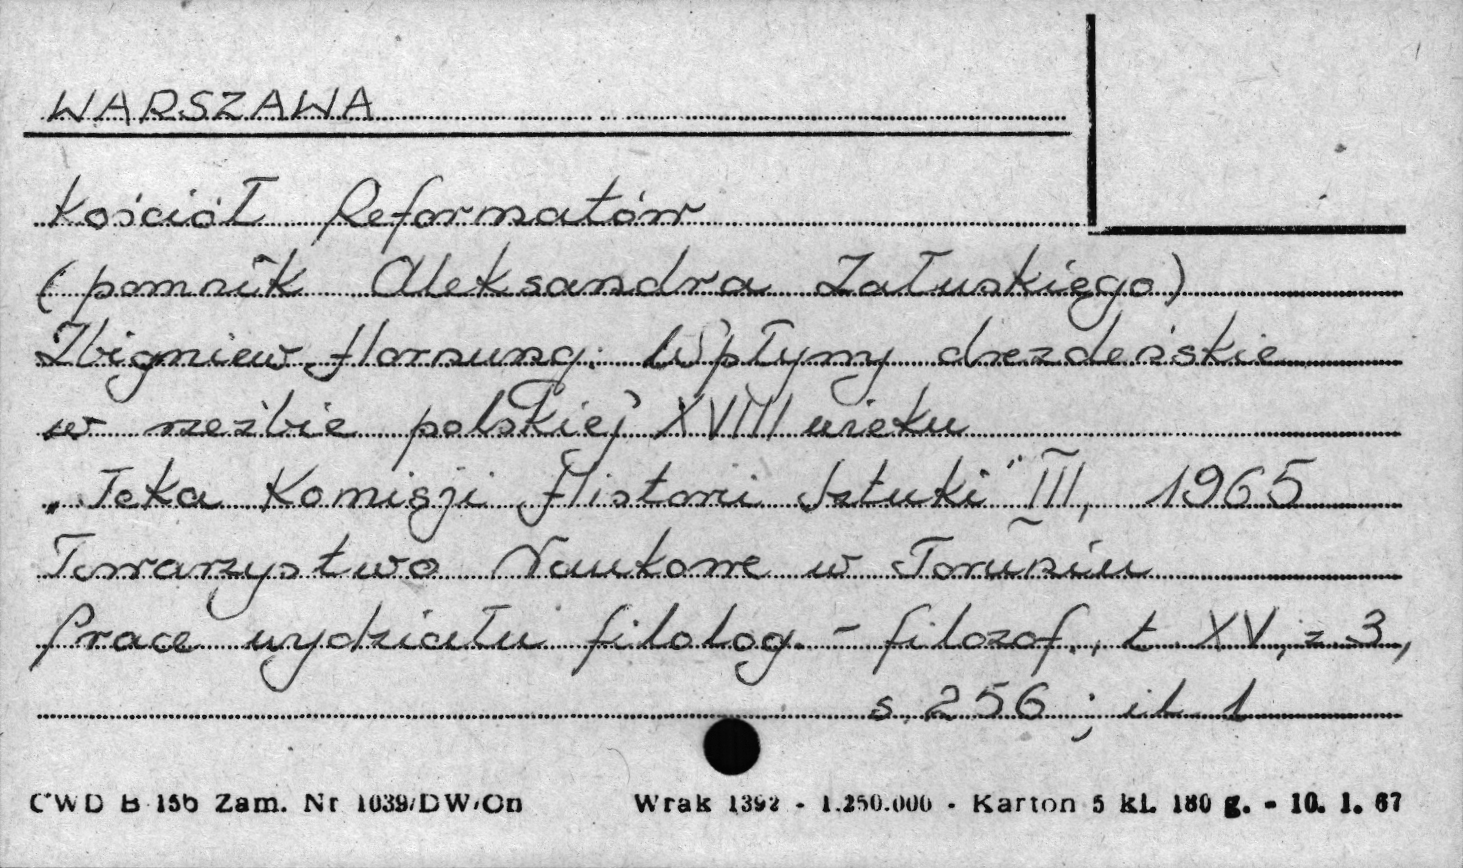 WARSZAWA
Kościół Reformatów
(pomnik Aleksandra Załuskiego)
Zbigniew Hornung: Wpływy drezdeńskie
w rzeźbie polskiej XVIII wieku
„Teka Komisji Historii Sztuki" III, 1965
Towarzystwo Naukowe w Toruniu
Prace wydziału filolog. - filozof., t XV, z 3,
s. 256 ; il 1
CWD B 15b Zam. Nr 1039/DW/On Wrak 1392 - 1.250.000 - Karton 5 kl. 180 g. - 10. 1. 67